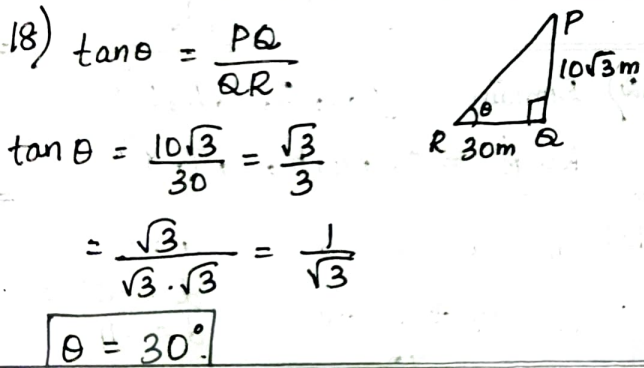 18) tanθ = PQ / QR.
P
10√3 m
θ
R 30m Q
tan θ = 10√3 / 30 = √3 / 3
= √3 / √3 . √3 = 1 / √3
θ = 30°.